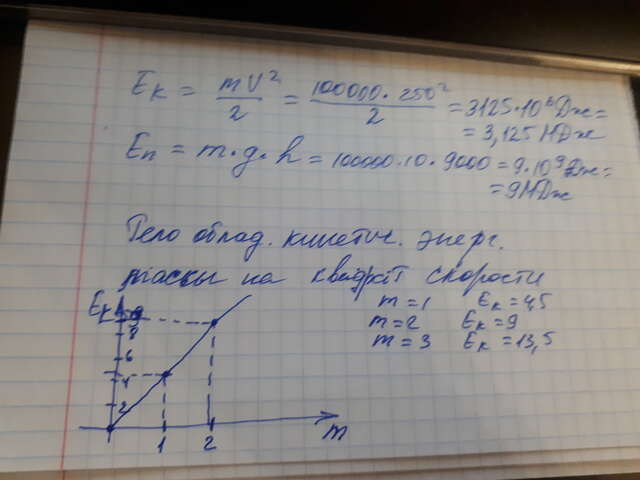 Eк = mV²/2 = 100000·250²/2 = 3125·10⁶Дж =
= 3,125 МДж
Eп = m·g·h = 100000·10·9000 = 9·10⁹Дж =
= 9МДж
Тело облад. кинетич. энерг.
массы на квадрат скорости
m = 1 Eк = 4,5
m = 2 Eк = 9
m = 3 Eк = 13,5
Eк
8
6
4
2
1 2 m